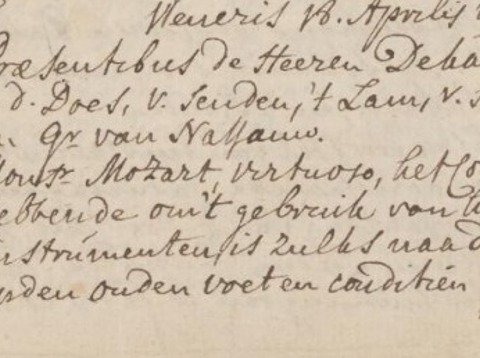 Veneris 18. Aprilis
Præsentibus de Heeren Deha
d. Does, v. Senden, 't Lam, v. S
Gr van Nassauw.
Monsr. Mozart, virtuoso, het Co
ebbende om't gebruik van
instrumenten, is zulks naa d
rden ouden voet en conditiën